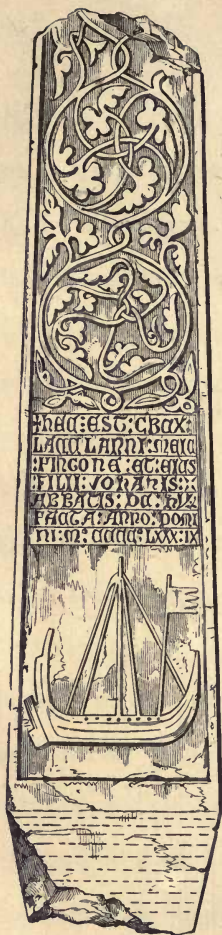 :hec:EST:CRUX:
LACC LANNI:meic
:FINGONE:ET:EJUS
FILII:JOHANIS:
ABBATIS:DE:HY:
FACTA:ANNO:DOMI
NI:M:CCCC:LXXX:IX